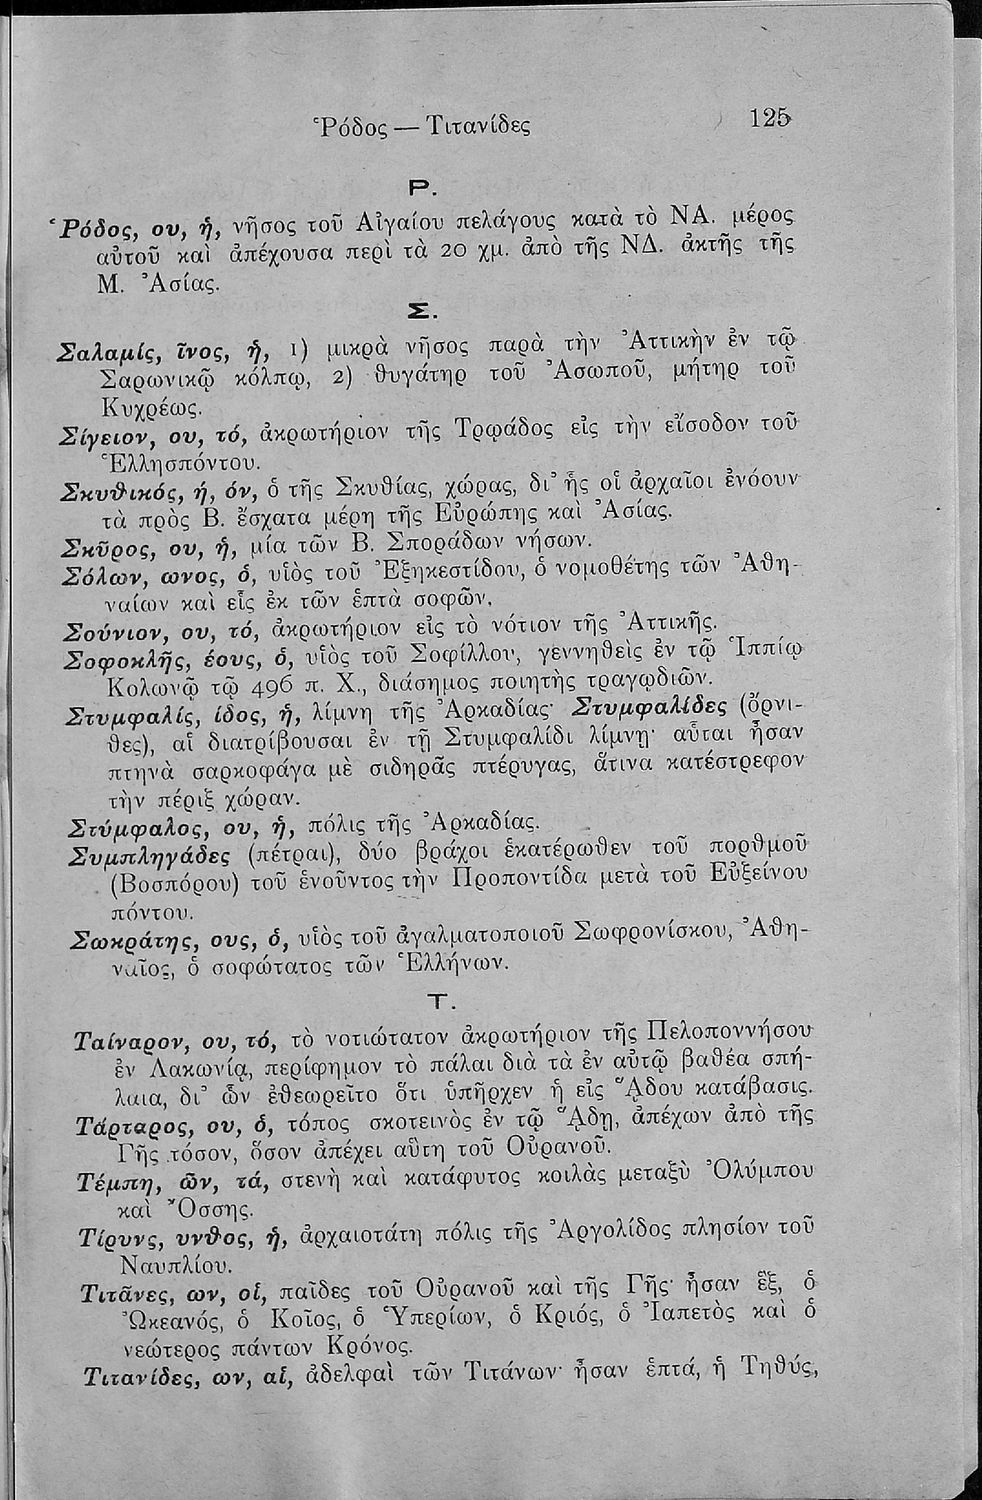 Ῥόδος — Τιτανίδες 125
Ρ.
Ῥόδος, ου, ἡ, νῆσος τοῦ Αἰγαίου πελάγους κατὰ τὸ ΝΑ. μέρος
αὐτοῦ καὶ ἀπέχουσα περὶ τὰ 20 χμ. ἀπὸ τῆς ΝΔ. ἀκτῆς τῆς
Μ. Ἀσίας.
Σ.
Σαλαμίς, ῖνος, ἡ, 1) μικρὰ νῆσος παρὰ τὴν Ἀττικὴν ἐν τῷ
Σαρωνικῷ κόλπῳ, 2) θυγάτηρ τοῦ Ἀσωποῦ, μήτηρ τοῦ
Κυχρέως.
Σίγειον, ου, τό, ἀκρωτήριον τῆς Τρῳάδος εἰς τὴν εἴσοδον τοῦ
Ἑλλησπόντου.
Σκυθικός, ή, όν, ὁ τῆς Σκυθίας, χώρας, δι' ἧς οἱ ἀρχαῖοι ἐνόουν
τὰ πρὸς Β. ἔσχατα μέρη τῆς Εὐρώπης καὶ Ἀσίας.
Σκῦρος, ου, ἡ, μία τῶν Β. Σποράδων νήσων.
Σόλων, ωνος, ὁ, υἱὸς τοῦ Ἐξηκεστίδου, ὁ νομοθέτης τῶν Ἀθη-
ναίων καὶ εἷς ἐκ τῶν ἑπτὰ σοφῶν.
Σούνιον, ου, τό, ἀκρωτήριον εἰς τὸ νότιον τῆς Ἀττικῆς.
Σοφοκλῆς, έους, ὁ, υἱὸς τοῦ Σοφίλλου, γεννηθεὶς ἐν τῷ Ἱππίῳ
Κολωνῷ τῷ 496 π. Χ., διάσημος ποιητὴς τραγῳδιῶν.
Στυμφαλίς, ίδος, ἡ, λίμνη τῆς Ἀρκαδίας· Στυμφαλίδες (ὄρνι-
θες), αἱ διατρίβουσαι ἐν τῇ Στυμφαλίδι λίμνῃ· αὗται ἦσαν
πτηνὰ σαρκοφάγα μὲ σιδηρᾶς πτέρυγας, ἅτινα κατέστρεφον
τὴν πέριξ χώραν.
Στύμφαλος, ου, ἡ, πόλις τῆς Ἀρκαδίας.
Συμπληγάδες (πέτραι), δύο βράχοι ἑκατέρωθεν τοῦ πορθμοῦ
(Βοσπόρου) τοῦ ἑνοῦντος τὴν Προποντίδα μετὰ τοῦ Εὐξείνου
πόντου.
Σωκράτης, ους, ὁ, υἱὸς τοῦ ἀγαλματοποιοῦ Σωφρονίσκου, Ἀθη-
ναῖος, ὁ σοφώτατος τῶν Ἑλλήνων.
Τ.
Ταίναρον, ου, τό, τὸ νοτιώτατον ἀκρωτήριον τῆς Πελοποννήσου
ἐν Λακωνίᾳ, περίφημον τὸ πάλαι διὰ τὰ ἐν αὐτῷ βαθέα σπή-
λαια, δι' ὧν ἐθεωρεῖτο ὅτι ὑπῆρχεν ἡ εἰς ᾍδου κατάβασις.
Τάρταρος, ου, ὁ, τόπος σκοτεινὸς ἐν τῷ ᾍδῃ, ἀπέχων ἀπὸ τῆς
Γῆς τόσον, ὅσον ἀπέχει αὕτη τοῦ Οὐρανοῦ.
Τέμπη, ῶν, τά, στενὴ καὶ κατάφυτος κοιλὰς μεταξὺ Ὀλύμπου
καὶ Ὄσσης.
Τίρυνς, υνθος, ἡ, ἀρχαιοτάτη πόλις τῆς Ἀργολίδος πλησίον τοῦ
Ναυπλίου.
Τιτᾶνες, ων, οἱ, παῖδες τοῦ Οὐρανοῦ καὶ τῆς Γῆς· ἦσαν ἕξ, ὁ
Ὠκεανός, ὁ Κοῖος, ὁ Ὑπερίων, ὁ Κριός, ὁ Ἰαπετὸς καὶ ὁ
νεώτερος πάντων Κρόνος.
Τιτανίδες, ων, αἱ, ἀδελφαὶ τῶν Τιτάνων· ἦσαν ἑπτά, ἡ Τηθύς,